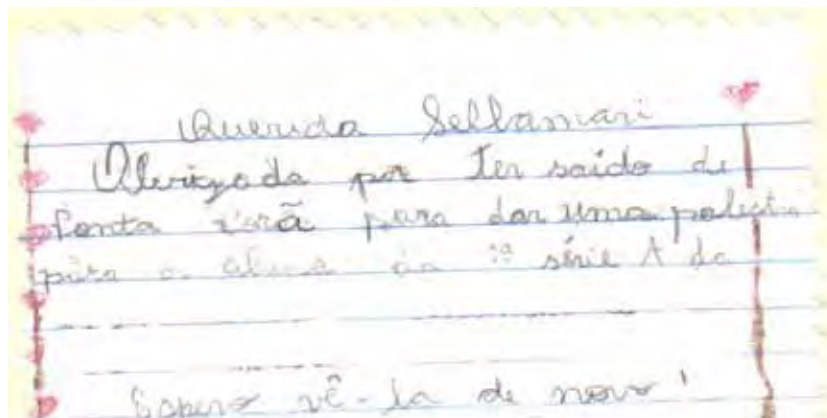 Querida Sellamari
Obrigada por ter saído de
Ponta para dar uma palest
para o aluno da ª série A da
Espero vê-la de novo!